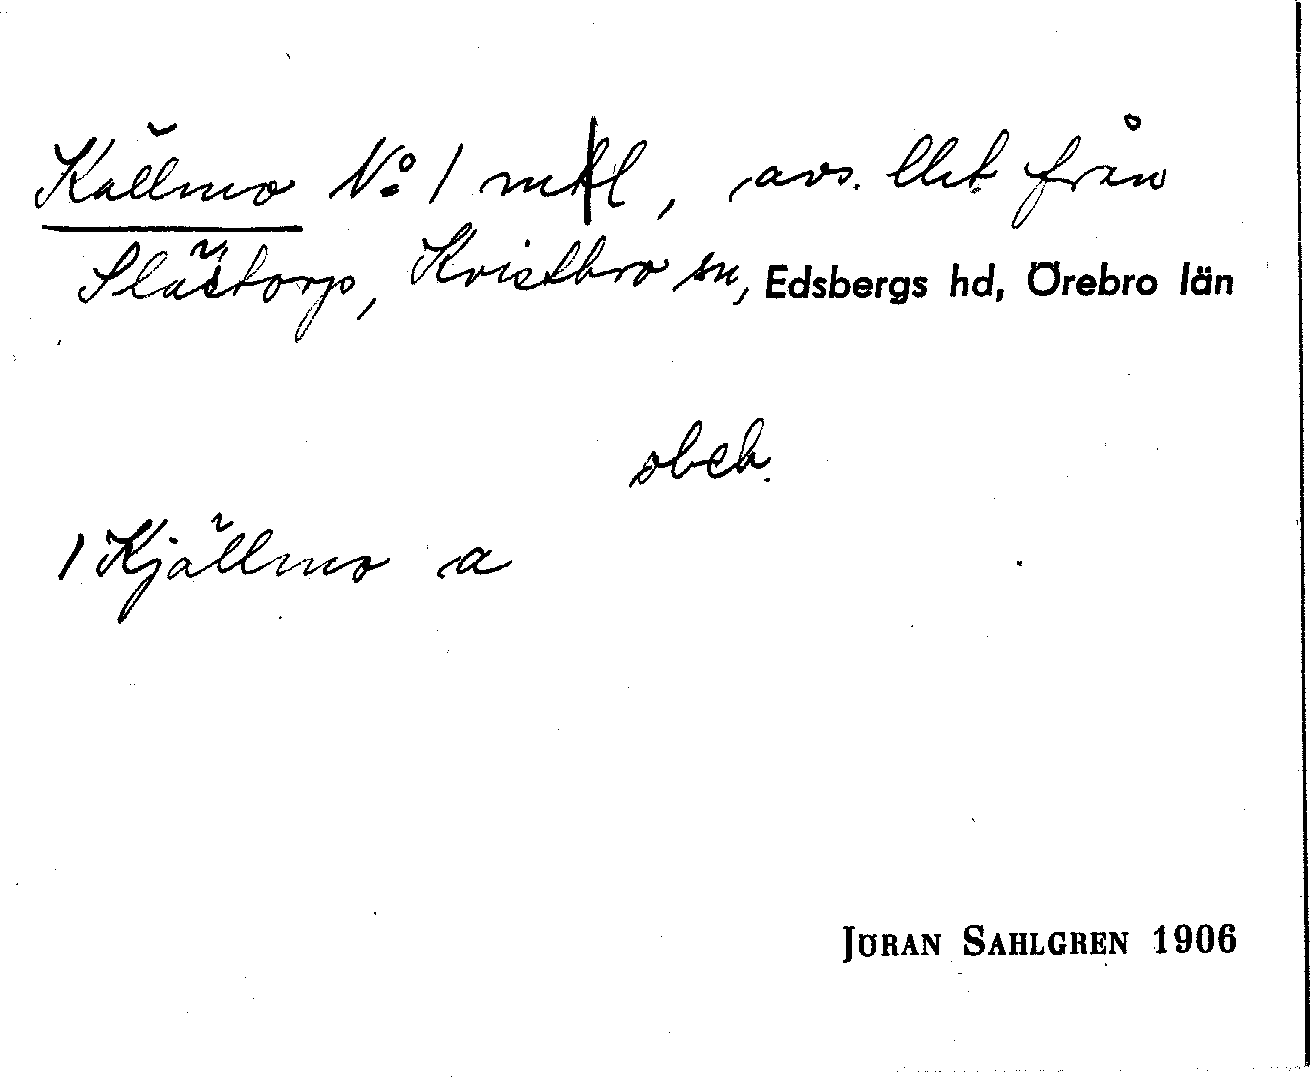 Källmo No 1 mtl, avs. lht från
Slästorp, Kvistbro sn, Edsbergs hd, Örebro län
obeb.
1 Kjällmo a
JÖRAN SAHLGREN 1906